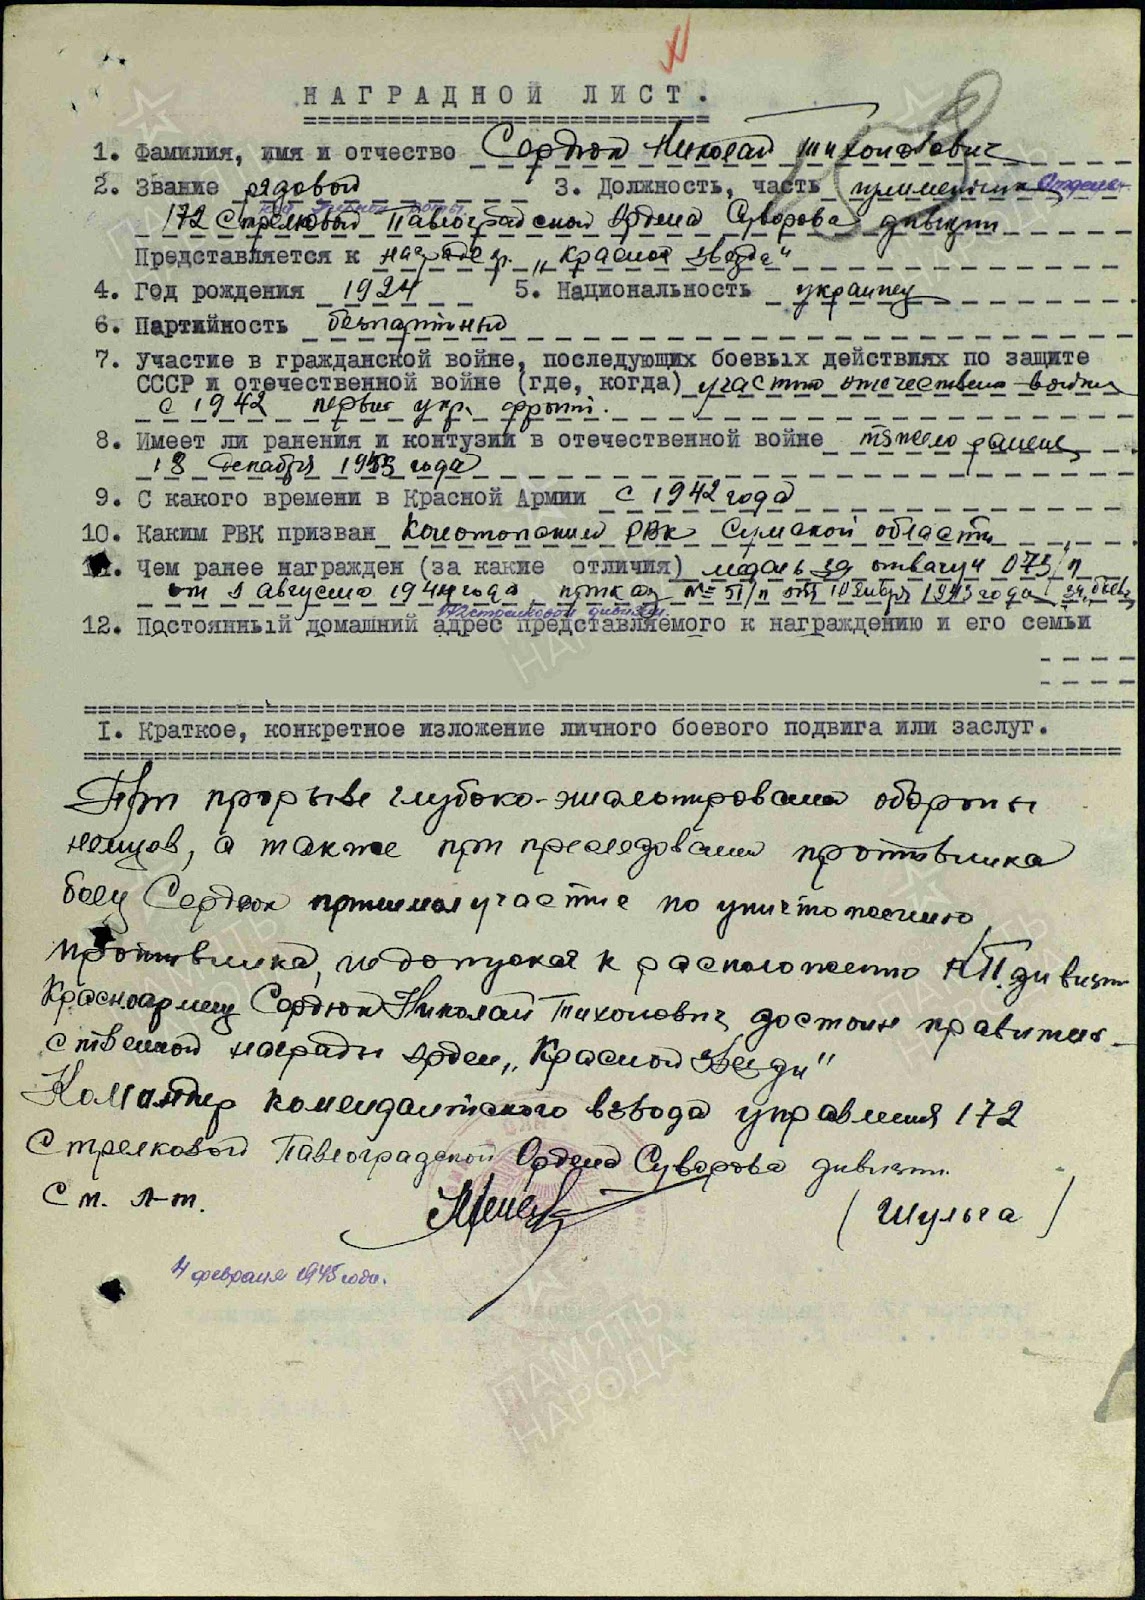 НАГРАДНОЙ ЛИСТ.
1. Фамилия, имя и отчество Сердюк Николай Тихонович
2. Звание рядовой 3. Должность, часть
172 Стрелковой Павлоградской Ордена Суворова дивизии
Представляется к награде ор. „Красная звезда"
4. Год рождения 1924 5. Национальность украинец
6. Партийность безпартийный
7. Участие в гражданской войне, последующих боевых действиях по защите
СССР и отечественной войне (где, когда) участник отечествен. войны
с 1942 первый укр. фронт.
8. Имеет ли ранения и контузии в отечественной войне тяжело ранен
18 декабря 1943 года
9. С какого времени в Красной Армии с 1942 года
10. Каким РВК призван Конотопским РВК Сумской области
11. Чем ранее награжден (за какие отличия) медаль за отвагу 075/п
от августа 1944 года приказ
172 стрелковой дивизии.
12. Постоянный домашний адрес представляемого к награждению и его семьи
I. Краткое, конкретное изложение личного боевого подвига или заслуг.
При прорыве глубоко-эшалонированой обороны
немцов, а также при преследовании противника
боец Сердюк принимал участие по уничтожению
противника, недопуская к расположению КП. дивизии
Красноармеец Сердюк Николай Тихонович достоин правитель-
ственной награды Орден „Красной Звезды"
Командир комендантского взвода управления 172
Стрелковой Павлоградской Ордена Суворова дивизии.
Ст. л-т. (Шульга)
4 февраля 1945 года.
ПАМЯТЬ
НАРОДА